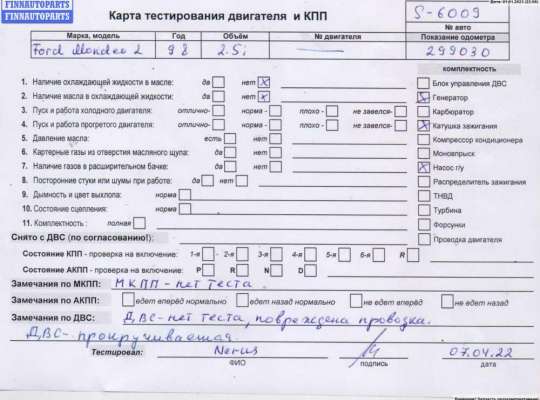 FINNAUTOPARTS
FINNAUTOPARTS
FINNAUTOPARTS
Карта тестирования двигателя и КПП
S-6009
№ авто
Марка, модель Год Объём № двигателя Показание одометра
Ford Mondeo 2 98 2.5i 299030
комплектность
1. Наличие охлаждающей жидкости в масле: да нет X
2. Наличие масла в охлаждающей жидкости: да нет X
3. Пуск и работа холодного двигателя: отлично- норма - плохо - не завелся-
4. Пуск и работа прогретого двигателя: отлично- норма - плохо - не завелся-
5. Давление масла: есть нет
6. Картерные газы из отверстия масляного щупа: да нет
7. Наличие газов в расширительном бачке: да нет
8. Посторонние стуки или шумы при работе: да нет
9. Дымность и цвет выхлопа: норма
10. Состояние сцепления: норма
11. Комплектность : полная
Блок управления ДВС
Генератор
Карбюратор
Катушка зажигания
Компрессор кондиционера
Моновпрыск
Насос г/у
Распределитель зажигания
ТНВД
Турбина
Форсунки
Проводка двигателя
Снято с ДВС (по согласованию!):
Состояние КПП - проверка на включение: 1-я - 2-я - 3-я 4-я 5-я 6-я R
Состояние АКПП - проверка на включение: P R N D
Замечания по МКПП: МКПП - нет теста.
Замечания по АКПП: едет вперёд нормально едет назад нормально не едет вперёд не едет назад
Замечания по ДВС: ДВС - нет теста, повреждена проводка.
ДВС - прокручивается
Тестировал: Nerus 07.04.22
ФИО подпись дата